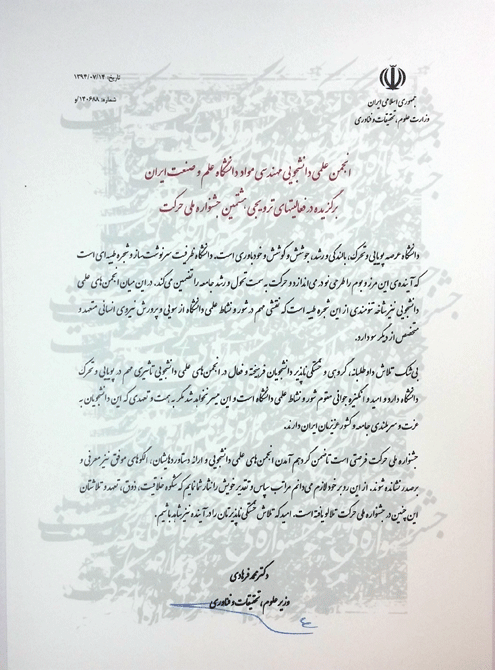 جمهوری اسلامی ایران
وزارت علوم، تحقیقات و فناوری
تاریخ: ۱۳۹۴/۰۷/۱۴
شماره: ۱۴۰۶۸۸/و
انجمن علمی دانشجویی مهندسی مواد دانشگاه علم و صنعت ایران
برگزیده در فعالیتهای ترویجی هشتمین جشنواره ملی حرکت
دانشگاه عرصه پویایی و تحرک، بالندگی و رشد، جوشش و کوشش و خودباوری است. دانشگاه ظرفیت سرنوشت‌ساز و شجره طیبه ای است
که آینده‌ی این مرز و بوم را طرحی نو در می اندازد و حرکت به سمت تحول و رشد جامعه را تضمین می‌کند. در این میان انجمن‌های علمی
دانشجویی نیز شاخه تنومندی از این شجره طیبه است که نقشی مهم در شور و نشاط علمی دانشگاه از سویی و پرورش نیروی انسانی متعهد و
متخصص از دیگر سو دارد.
بی‌شک تلاش داوطلبانه، گروهی و خستگی ناپذیر دانشجویان فرهیخته و فعال در انجمن‌های علمی دانشجویی تاثیری مهم در پویایی و تحرک
دانشگاه دارد و امید و انگیزه جوانی مقوم شور و نشاط علمی دانشگاه است و این میسر نخواهد شد مگر به همت و تعهدی که این دانشجویان به
عزت و سربلندی جامعه و کشور عزیزمان ایران دارند.
جشنواره ملی حرکت فرصتی است تا ضمن گردهم آمدن انجمن‌های علمی دانشجویی و ارائه دستاوردهایشان، الگوهای موفق نیز معرفی و
بر صدر نشانده شوند. از این رو بر خود لازم می‌دانم مراتب سپاس و تقدیر خویش را نثار شما نمایم که شکوه خلاقیت، ذوق، تعهد و تلاشتان
این چنین در جشنواره ملی حرکت تلالو یافته است. امید که تلاش خستگی ناپذیرتان را در آینده نیز شاهد باشیم.
دکتر محمد فرهادی
وزیر علوم، تحقیقات و فناوری